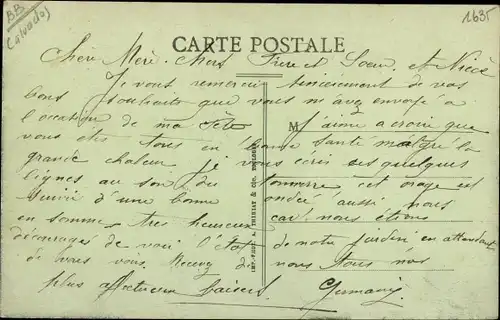 BB
Calvados
1635
CARTE POSTALE
Chère Mère. Chers Frère et Soeur. et Nièce
Je vous remercie sincèrement de vos
bons souhaits que vous m'avez envoyé a
l'occation de ma Fête M J'aime a croire que
vous êtes tous en bonne santé malgré la
grande chaleur je vous écris ces quelques
lignes au son du tonnerre cet orage est
suivir d'une bonne ondée aussi nous
en somme très heureux car nous étions
découragés de voir l'état de notre jardin en attendant
de vous nous tous nos
plus affectueux baisers Germaine
IMP.-PHOT. A. THIRIAT & CIE, TOULOUSE